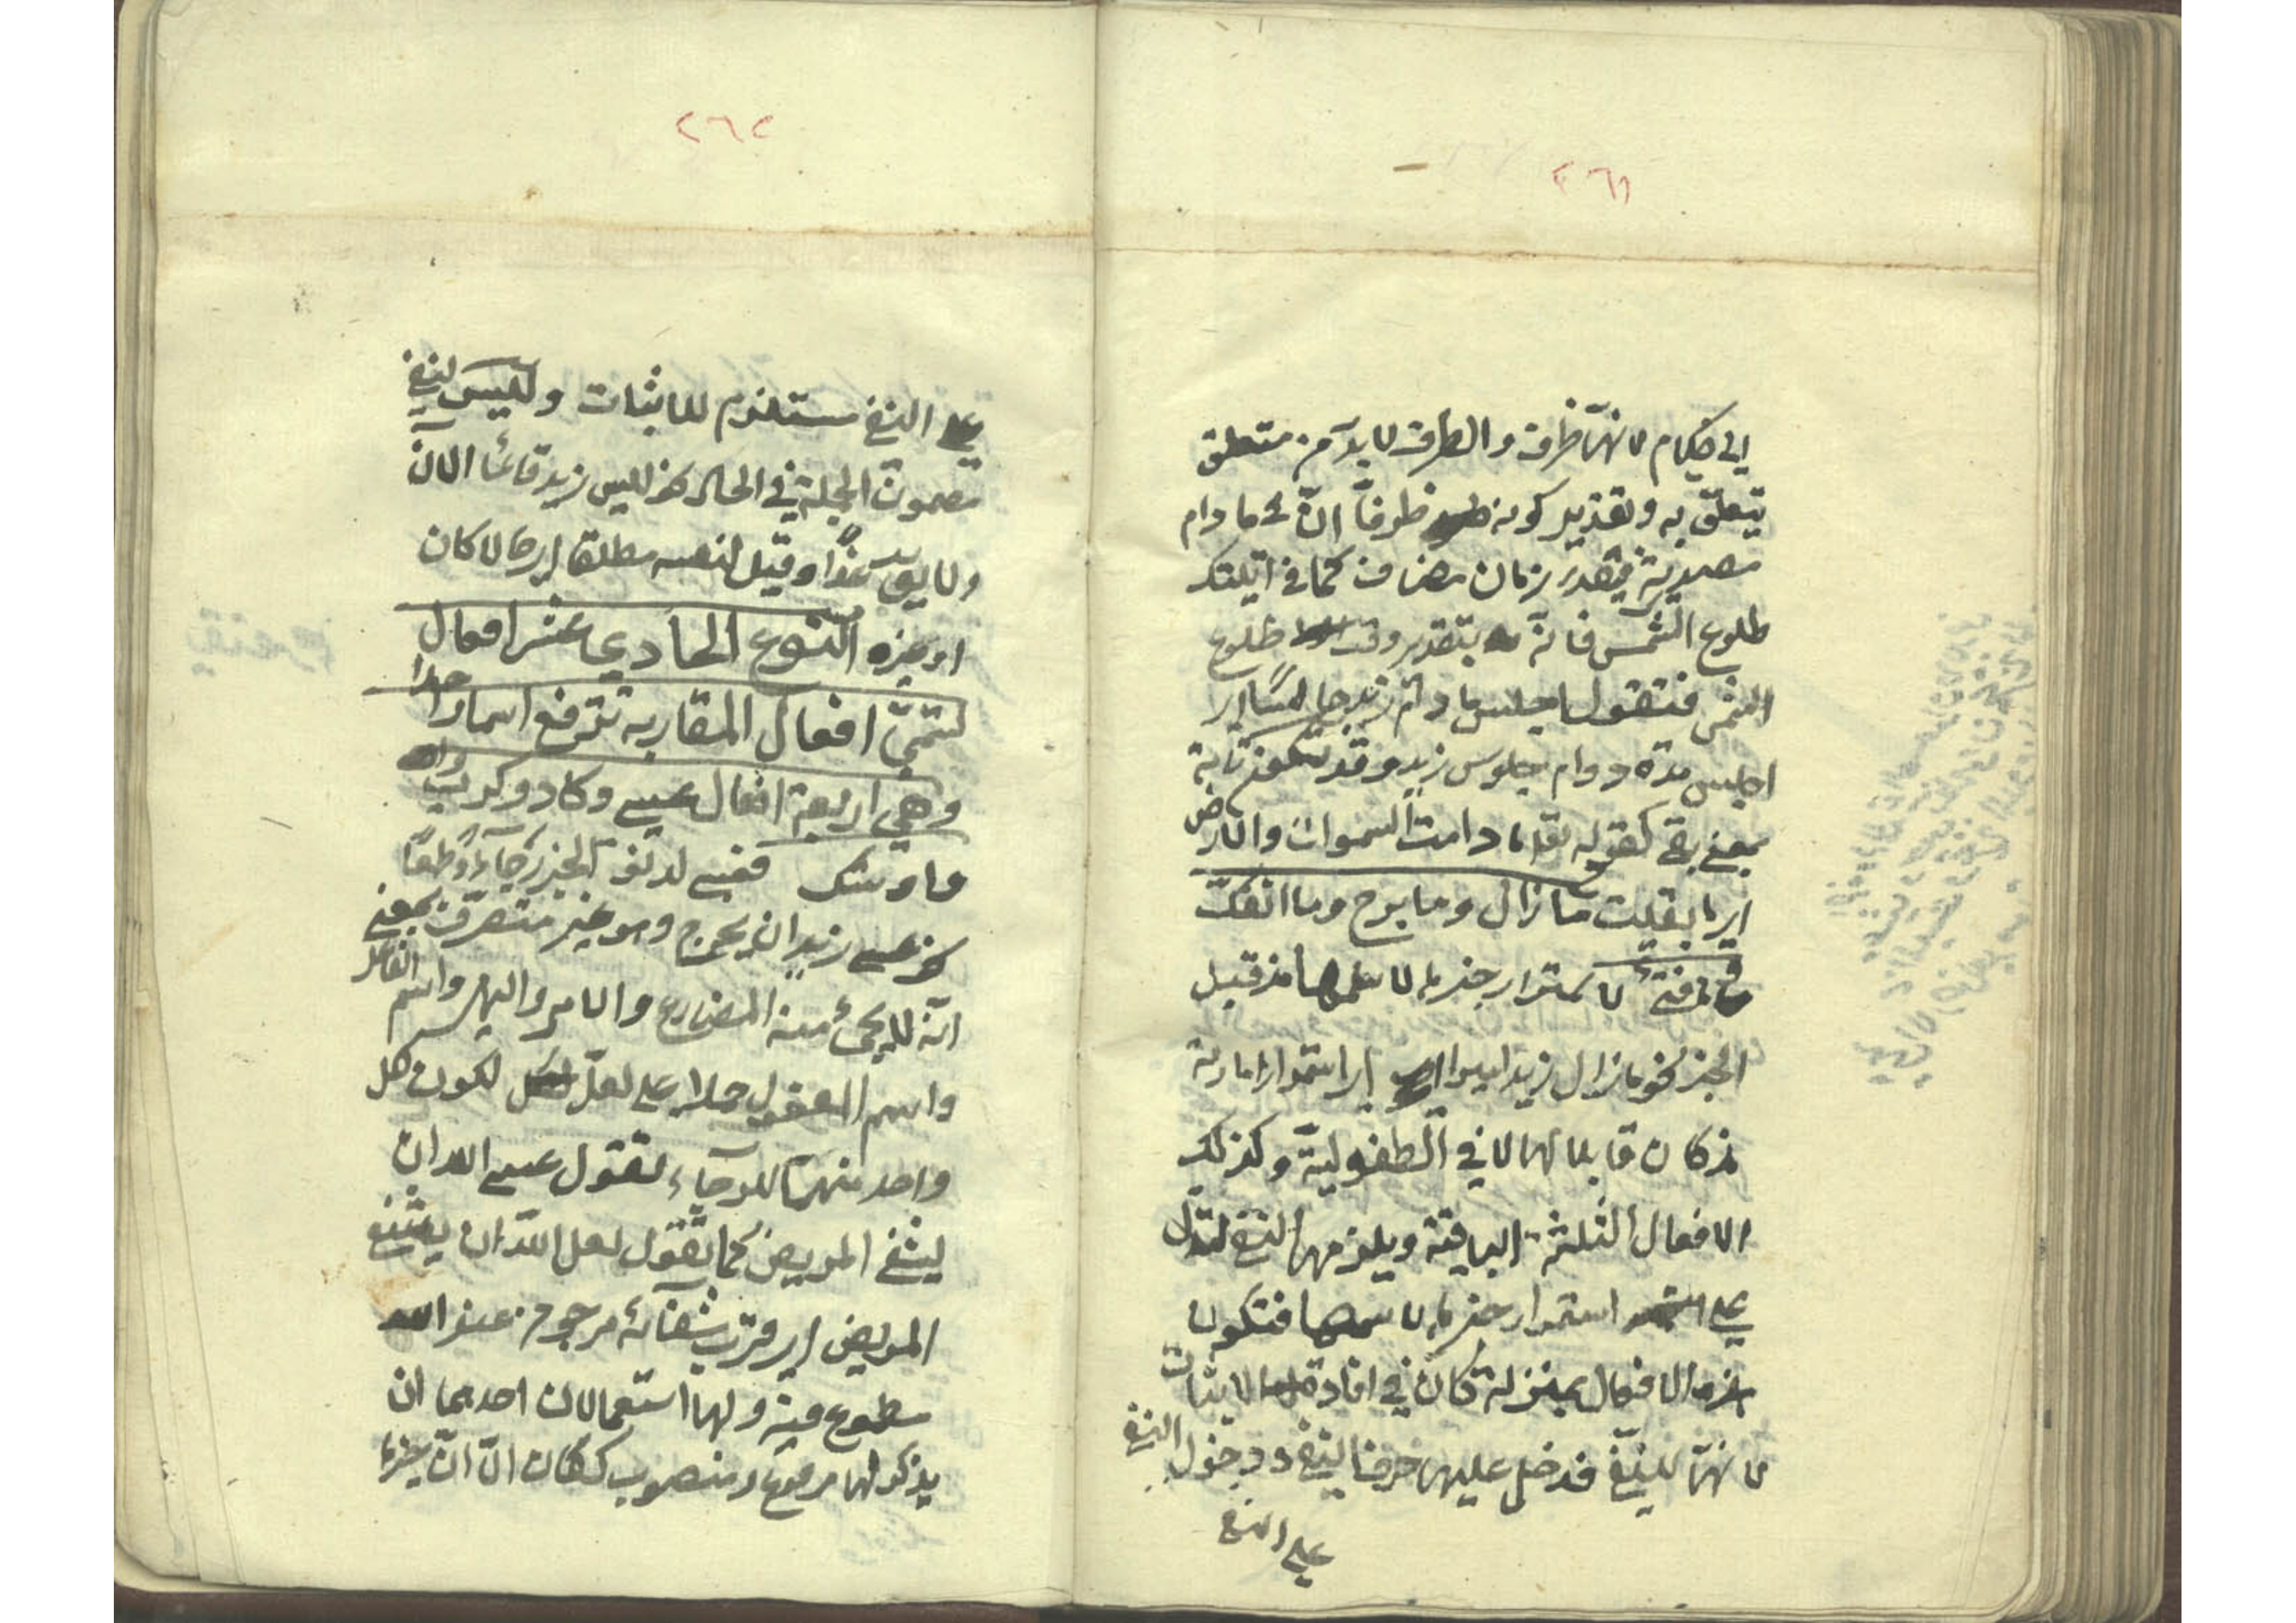 ٢٦١
الى كلام لانها ظرف والظرف لا بد من متعلق
يتعلق به وتقدير كونه ظرفا ان ما دام
مصدرية فيقدر زمان مضاف كما في اتيتك
طلوع الشمس فانه بتقدير وقت طلوع
الشمس فتقول اجلس ما دام زيد جالسا اي
اجلس مدة دوام جلوس زيد وقد تكون تامة
بمعنى بقى كقوله تعا ما دامت السموات والارض
اي ما بقيت ما زال وما برح وما انفك
وما فتئ لاستمرار خبرها لاسمها مذ قبل
الخبر نحو ما زال زيد اميرا اي استمر امارته
مذ كان قابلا لها لا في الطفولية وكذلك
الافعال الثلثة الباقية ويلزمها النفى لتدل
على استمرار خبرها لاسمها فتكون
هذه الافعال بمنزلة كان في افادة الاثبات
لانها للنفى فدخل عليها حرف النفى ودخول النفى
على النفى
٢٦٢
على النفى مستلزم للاثبات وليس لنفى
مضمون الجملة في الحال نحو ليس زيد قائما الان
ولا يق غدا وقيل لنفيه مطلقا اي حالا كان
او غيره النوع الحادي عشر افعال
تسمى افعال المقاربة ترفع اسما واحدا
وهي اربعة افعال عسى وكاد وكرب
واوشك فعسى لدنو الخبر رجاء وطمعا
نحو عسى زيد ان يخرج وهو غير متصرف بمعنى
انه لا يجئ منه المضارع والامر والنهى واسم الفاعل
واسم المفعول حملا على لعل لكون كل
واحد منهما للرجاء تقول عسى الله ان
يشفى المريض كما تقول لعل الله ان يشفى
المريض اي قرب شفائه مرجو من عند الله
مطموع فيه ولها استعمالان احدهما ان
يذكر لها مرفوع ومنصوب ككان الا ان خبرها